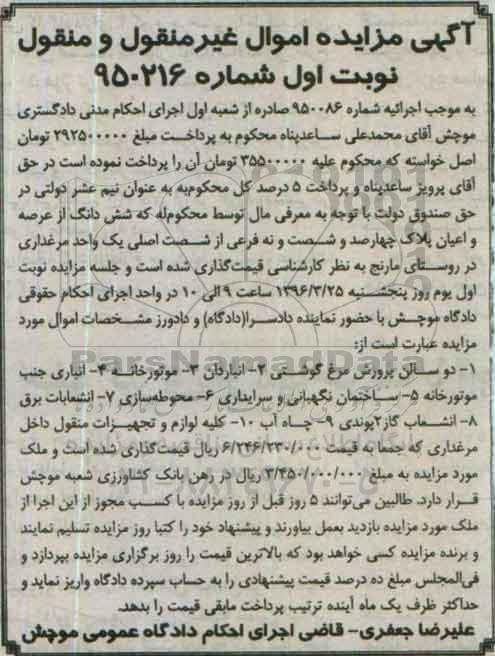 آگهی مزایده اموال غیرمنقول و منقول
نوبت اول شماره ۹۵۰۲۱۶
به موجب اجرائیه شماره ۹۵۰۰۸۶ صادره از شعبه اول اجرای احکام مدنی دادگستری
موچش آقای محمدعلی ساعدپناه محکوم به پرداخت مبلغ ۲۹۲۵۰۰۰۰۰ تومان
اصل خواسته که محکوم علیه ۳۵۵۰۰۰۰۰ تومان آن را پرداخت نموده است در حق
آقای پرویز ساعدپناه و پرداخت ۵ درصد کل محکوم‌به به عنوان نیم عشر دولتی در
حق صندوق دولت با توجه به معرفی مال توسط محکوم‌له که شش دانگ از عرصه
و اعیان پلاک چهارصد و شصت و نه فرعی از شصت اصلی یک واحد مرغداری
در روستای مارنج به نظر کارشناسی قیمت‌گذاری شده است و جلسه مزایده نوبت
اول یوم روز پنجشنبه ۱۳۹۶/۳/۲۵ ساعت ۹ الی ۱۰ در واحد اجرای احکام حقوقی
دادگاه موچش با حضور نماینده دادسرا(دادگاه) و دادورز مشخصات اموال مورد
مزایده عبارت است از:
ParsNamadData
۱- دو سالن پرورش مرغ گوشتی ۲- انباردان ۳- موتورخانه ۴- انباری جنب
موتورخانه ۵- ساختمان نگهبانی و سرایداری ۶- محوطه‌سازی ۷- انشعابات برق
۸- انشعاب گاز۲پوندی ۹- چاه آب ۱۰- کلیه لوازم و تجهیزات منقول داخل
مرغداری که جمعا به قیمت ۶/۲۴۶/۲۳۰/۰۰۰ ریال قیمت‌گذاری شده است و ملک
مورد مزایده به مبلغ ۳/۴۵۰/۰۰۰/۰۰۰ ریال در رهن بانک کشاورزی شعبه موچش
قرار دارد. طالبین می‌توانند ۵ روز قبل از روز مزایده با کسب مجوز از این اجرا از
ملک مورد مزایده بازدید بعمل بیاورند و پیشنهاد خود را کتبا روز مزایده تسلیم نمایند
و برنده مزایده کسی خواهد بود که بالاترین قیمت را روز برگزاری مزایده بپردازد و
فی‌المجلس مبلغ ده درصد قیمت پیشنهادی را به حساب سپرده دادگاه واریز نماید و
حداکثر ظرف یک ماه آینده ترتیب پرداخت مابقی قیمت را بدهد.
علیرضا جعفری- قاضی اجرای احکام دادگاه عمومی موچش